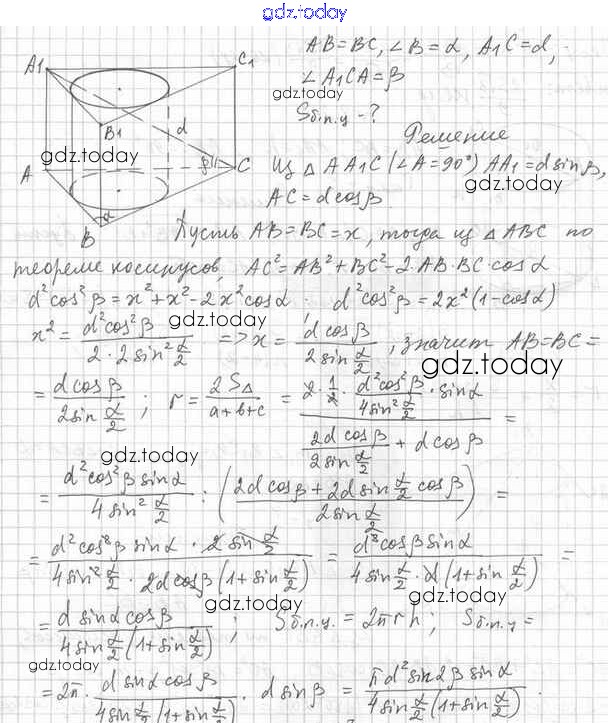 gdz.today
AB=BC, ∠B=α, A₁C=d,
∠A₁CA=β
gdz.today
Sб.п.ц -?
Решение
A₁ C₁ B₁ d β A C α B
gdz.today
Из △AA₁C (∠A=90°) AA₁=d sinβ,
gdz.today
AC=d cosβ
Пусть AB=BC=x, тогда из △ABC по
теореме косинусов, AC²=AB²+BC²-2·AB·BC·cosα
d²cos²β=x²+x²-2x²cosα; d²cos²β=2x²(1-cosα)
gdz.today
x²=d²cos²β/(2·2sin²α/2) => x=d cosβ/(2sin α/2), значит AB=BC=
gdz.today
=d cosβ/(2sin α/2); r=2S△/(a+b+c)=(2·1/2·d²cos²β/(4sin²α/2)·sinα)/(2d cosβ/(2sin α/2)+d cosβ)=
gdz.today
=d²cos²β sinα/(4sin²α/2):((2d cosβ+2d sin α/2 cosβ)/(2sin α/2))=
=(d²cos²β sinα·2sin α/2)/(4sin²α/2·2d cosβ(1+sin α/2))=d²cosβ sinα/(4sin α/2·d(1+sin α/2))=
gdz.today
=d sinα cosβ/(4sin α/2(1+sin α/2)); Sб.п.ц.=2πrh; Sб.п.ц.=
gdz.today
=2π·d sinα cosβ/(4sin α/2(1+sin α/2))·d sinβ=πd²sin2β sinα/(4sin α/2(1+sin α/2)).